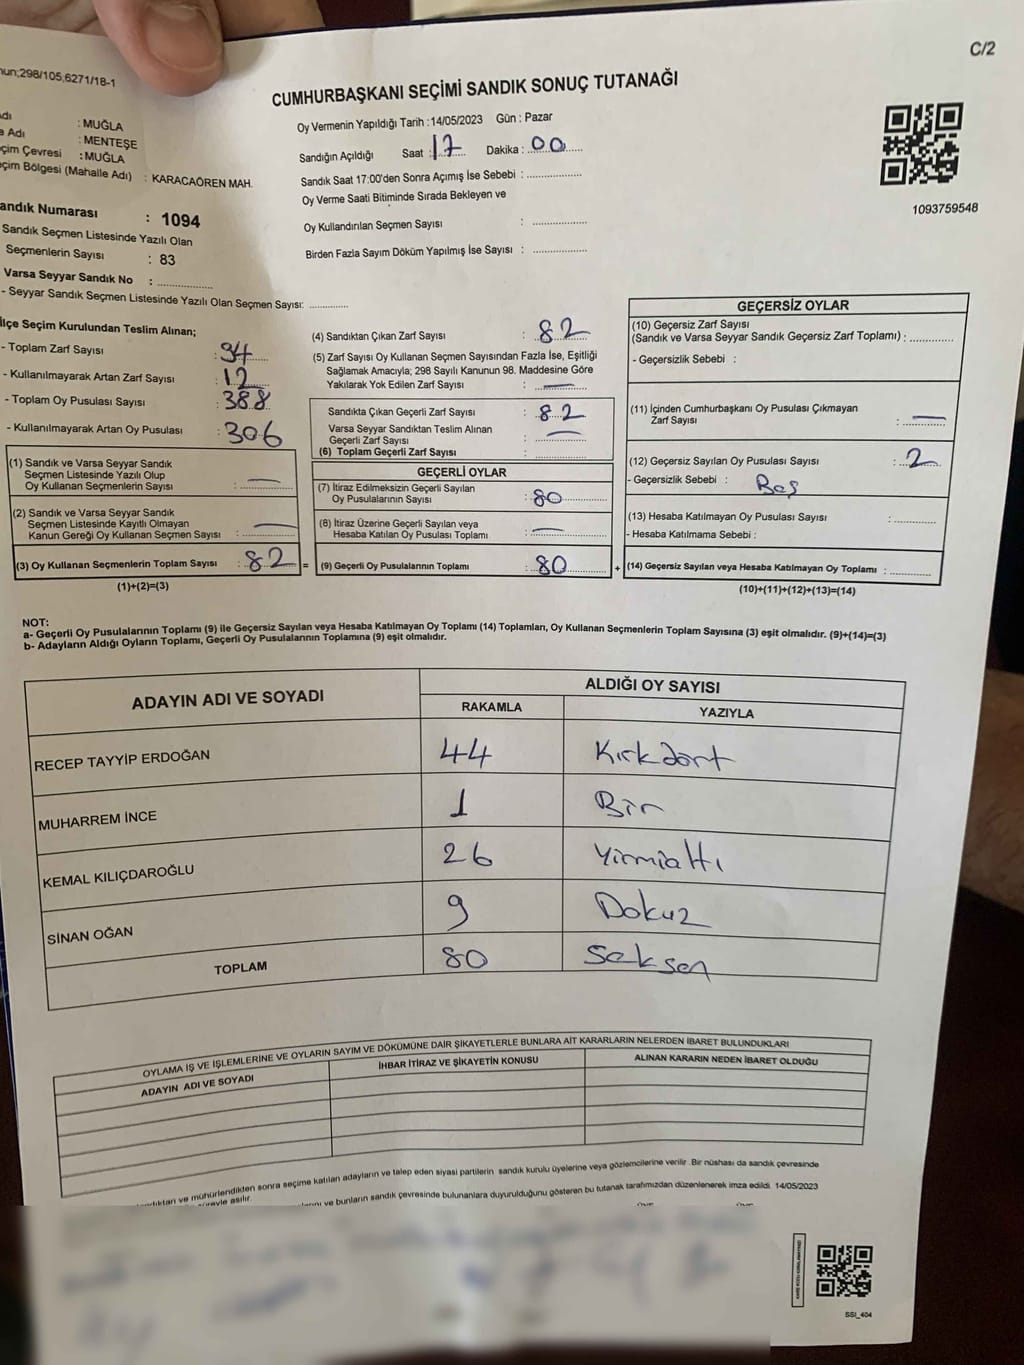 C/2
298/105,6271/18-1
CUMHURBAŞKANI SEÇİMİ SANDIK SONUÇ TUTANAĞI
: MUĞLA
Adı : MENTEŞE
Çevresi : MUĞLA
Bölgesi (Mahalle Adı) : KARACAÖREN MAH.
Sandık Numarası : 1094
Sandık Seçmen Listesinde Yazılı Olan
Seçmenlerin Sayısı : 83
Varsa Seyyar Sandık No :
- Seyyar Sandık Seçmen Listesinde Yazılı Olan Seçmen Sayısı:
Oy Vermenin Yapıldığı Tarih :14/05/2023 Gün : Pazar
Sandığın Açıldığı Saat : 17 Dakika : 00
Sandık Saat 17:00'den Sonra Açımış İse Sebebi :
Oy Verme Saati Bitiminde Sırada Bekleyen ve
Oy Kullandırılan Seçmen Sayısı :
Birden Fazla Sayım Döküm Yapılmış İse Sayısı :
1093759548
İlçe Seçim Kurulundan Teslim Alınan;
- Toplam Zarf Sayısı : 94
- Kullanılmayarak Artan Zarf Sayısı : 12
- Toplam Oy Pusulası : 388
- Kullanılmayarak Artan Oy Pusulası : 306
(1) Sandık ve Varsa Seyyar Sandık
Seçmen Listesinde Yazılı Olup
Oy Kullanan Seçmenlerin Sayısı : —
(2) Sandık ve Varsa Seyyar Sandık
Seçmen Listesinde Kayıtlı Olmayan
Kanun Gereği Oy Kullanan Seçmen Sayısı : —
(3) Oy Kullanan Seçmenlerin Toplam Sayısı : 82 =
(1)+(2)=(3)
(4) Sandıktan Çıkan Zarf Sayısı : 82
(5) Zarf Sayısı Oy Kullanan Seçmen Sayısından Fazla İse, Eşitliği
Sağlamak Amacıyla; 298 Sayılı Kanunun 98. Maddesine Göre
Yakılarak Yok Edilen Zarf Sayısı : —
Sandıkta Çıkan Geçerli Zarf Sayısı : 82
Varsa Seyyar Sandıktan Teslim Alınan
Geçerli Zarf Sayısı : —
(6) Toplam Geçerli Zarf Sayısı :
GEÇERLİ OYLAR
(7) İtiraz Edilmeksizin Geçerli Sayılan
Oy Pusulalarının Sayısı : 80
(8) İtiraz Üzerine Geçerli Sayılan veya
Hesaba Katılan Oy Pusulası Toplamı : —
(9) Geçerli Oy Pusulalarının Toplamı : 80 +
GEÇERSİZ OYLAR
(10) Geçersiz Zarf Sayısı
(Sandık ve Varsa Seyyar Sandık Geçersiz Zarf Toplamı) :
- Geçersizlik Sebebi :
(11) İçinden Cumhurbaşkanı Oy Pusulası Çıkmayan
Zarf Sayısı : —
(12) Geçersiz Sayılan Oy Pusulası Sayısı : 2
- Geçersizlik Sebebi : Boş
(13) Hesaba Katılmayan Oy Pusulası Sayısı :
- Hesaba Katılmama Sebebi :
(14) Geçersiz Sayılan veya Hesaba Katılmayan Oy Toplamı :
(10)+(11)+(12)+(13)=(14)
NOT:
a- Geçerli Oy Pusulalarının Toplamı (9) ile Geçersiz Sayılan veya Hesaba Katılmayan Oy Toplamı (14) Toplamları, Oy Kullanan Seçmenlerin Toplam Sayısına (3) eşit olmalıdır. (9)+(14)=(3)
b- Adayların Aldığı Oyların Toplamı, Geçerli Oy Pusulalarının Toplamına (9) eşit olmalıdır.
ADAYIN ADI VE SOYADI ALDIĞI OY SAYISI
RAKAMLA YAZIYLA
RECEP TAYYİP ERDOĞAN 44 Kırkdört
MUHARREM İNCE 1 Bir
KEMAL KILIÇDAROĞLU 26 Yirmialtı
SİNAN OĞAN 9 Dokuz
TOPLAM 80 Seksen
OYLAMA İŞ VE İŞLEMLERİNE VE OYLARIN SAYIM VE DÖKÜMÜNE DAİR ŞİKAYETLERLE BUNLARA AİT KARARLARIN NELERDEN İBARET BULUNDUKLARI
ADAYIN ADI VE SOYADI İHBAR İTİRAZ VE ŞİKAYETİN KONUSU ALINAN KARARIN NEDEN İBARET OLDUĞU
ve mühürlendikten sonra seçime katılan adayların ve talep eden siyasi partilerin sandık kurulu üyelerine veya gözlemcilerine verilir. Bir nüshası da sandık çevresinde
asılır.
ve bunların sandık çevresinde bulunanlara duyurulduğunu gösteren bu tutanak tarafımızdan düzenlenerek imza edildi. 14/05/2023
SSI_404